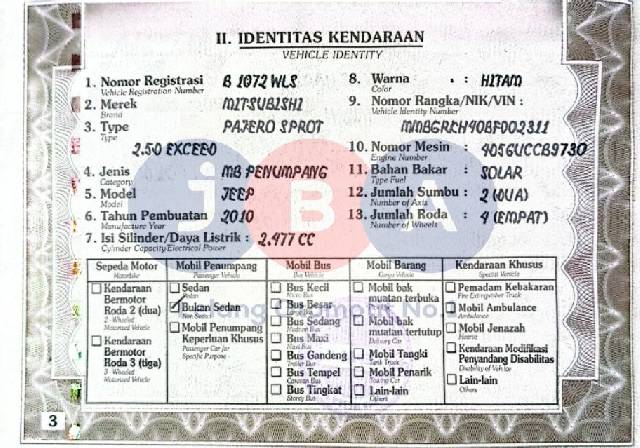 II. IDENTITAS KENDARAAN
VEHICLE IDENTITY
1. Nomor Registrasi B 1072 WLS
Vehicle Registration Number
2. Merek MITSUBISHI
Brand
3. Type PAJERO SPROT
Type
2.50 EXCEED
4. Jenis MB PENUMPANG
Category
5. Model JEEP
Model
6. Tahun Pembuatan 2010
Manufacture Year
7. Isi Silinder/Daya Listrik : 2.477 CC
Cylinder Capacity/Electrical Power
8. Warna : HITAM
Color
9. Nomor Rangka/NIK/VIN :
Vehicle Identity Number
MMBGRKH40BF002311
10. Nomor Mesin : 4D56UCCB9730
Engine Number
11. Bahan Bakar : SOLAR
Type Fuel
12. Jumlah Sumbu : 2 (DUA)
Number of Axis
13. Jumlah Roda : 4 (EMPAT)
Number of Wheels
JBA
Sepeda Motor
Motorbike
Kendaraan
Bermotor
Roda 2 (dua)
2- Wheeled
Motorized Vehicle
Kendaraan
Bermotor
Roda 3 (tiga)
3- Wheeled
Motorized Vehicle
Mobil Penumpang
Passenger Vehicle
Sedan
Sedan
Bukan Sedan
Non Sedan
Mobil Penumpang
Keperluan Khusus
Passenger Car for
Specific Purpose
Mobil Bus
Bus Vehicle
Bus Kecil
Bus Besar
Bus Sedang
Bus Maxi
Bus Gandeng
Bus Tempel
Bus Tingkat
Mobil Barang
Cargo Vehicle
Mobil bak
muatan terbuka
Mobil bak
muatan tertutup
Delivery Car
Mobil Tangki
Tank Truck
Mobil Penarik
Towing Car
Lain-lain
Others
Kendaraan Khusus
Special Vehicle
Pemadam Kebakaran
Fire Extinguisher Truck
Mobil Ambulance
Ambulance
Mobil Jenazah
Hearse
Kendaraan Modifikasi
Penyandang Disabilitas
Disability of Vehicle
Lain-lain
Others
3